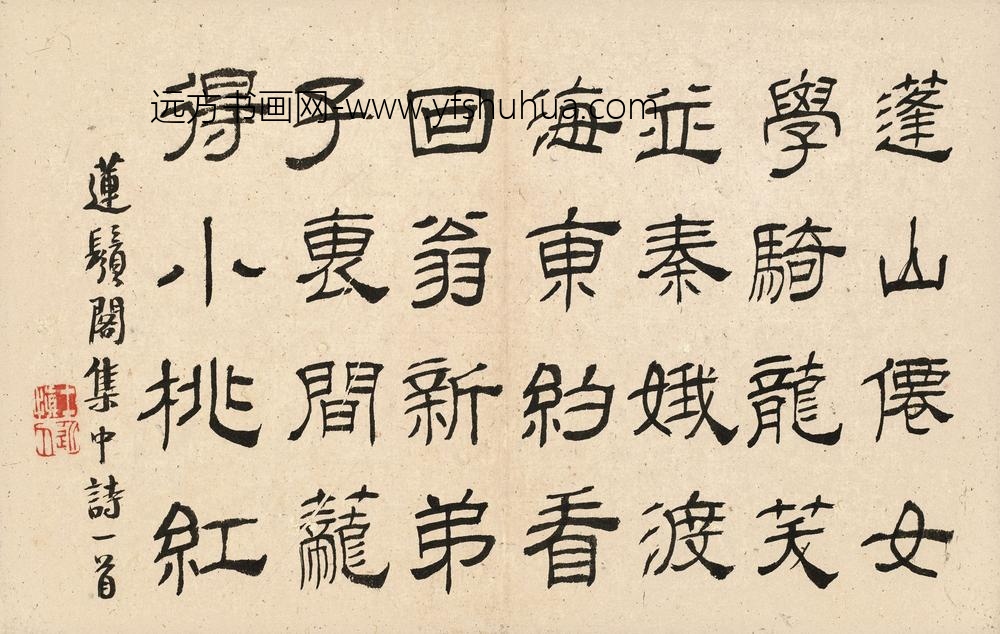 蓬山僊女
學騎龍笑
並秦娥渡
海東約看
回翁新弟
子裏間蘢
得小桃紅
蓮鬚閣集中詩一首
远方书画网-www.yfshuhua.com